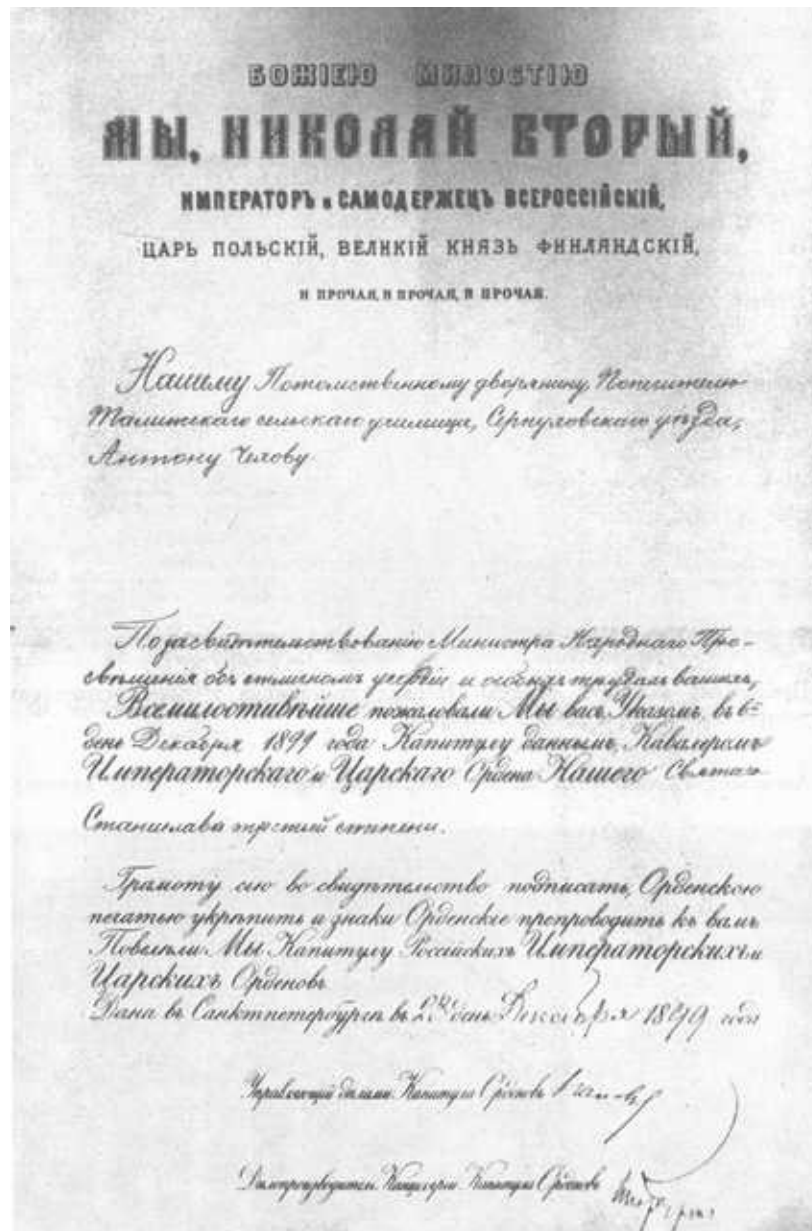 БОЖІЕЮ МИЛОСТІЮ
МЫ, НИКОЛАЙ ВТОРЫЙ,
ИМПЕРАТОРЪ и САМОДЕРЖЕЦЪ ВСЕРОССІЙСКІЙ,
ЦАРЬ ПОЛЬСКІЙ, ВЕЛИКІЙ КНЯЗЬ ФИНЛЯНДСКІЙ,
И ПРОЧАЯ, И ПРОЧАЯ, И ПРОЧАЯ.
Нашему Потомственному дворянину, Попечителю
Талитскаго сельскаго училища, Серпуховскаго уѣзда,
Антону Чехову
По засвидѣтельствованію Министра Народнаго Про-
свѣщенія объ отличномъ усердіи и особыхъ трудахъ вашихъ,
Всемилостивѣйше пожаловали Мы васъ, Указомъ, въ 6й
день Декабря 1899 года Капитулу даннымъ, Кавалеромъ
Императорскаго и Царскаго Ордена Нашего Святаго
Станислава третьей степени.
Грамоту сію во свидѣтельство подписать, Орденскою
печатью укрѣпить и знаки Орденскіе препроводить къ вамъ
Повелѣли Мы Капитулу Россійскихъ Императорскихъ и
Царскихъ Орденовъ
Дана въ Санктпетербургѣ въ день Декабря 1899 года
Управляющій дѣлами Капитула Орденовъ
Дѣлопроизводитель Канцеляріи Капитула Орденовъ